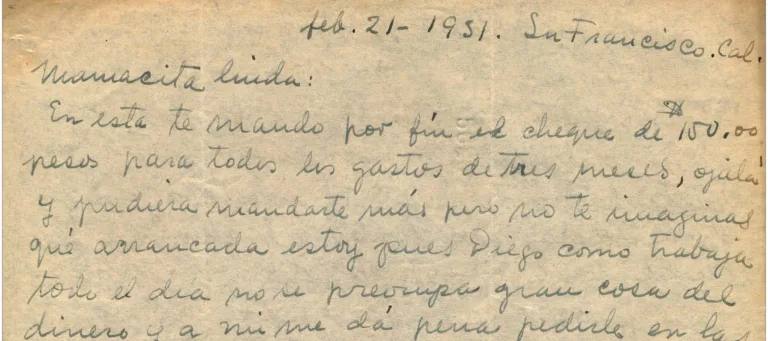 feb. 21- 1931. Sn Francisco. Cal.
Mamacita linda:
En esta te mando por fin el cheque de $150.00
pesos para todos los gastos de tres meses, ojalá
y pudiera mandarte más pero no te imaginas
qué arrancada estoy pues Diego como trabaja
todo el día no se preocupa gran cosa del
dinero y a mi me dá pena pedirle en la